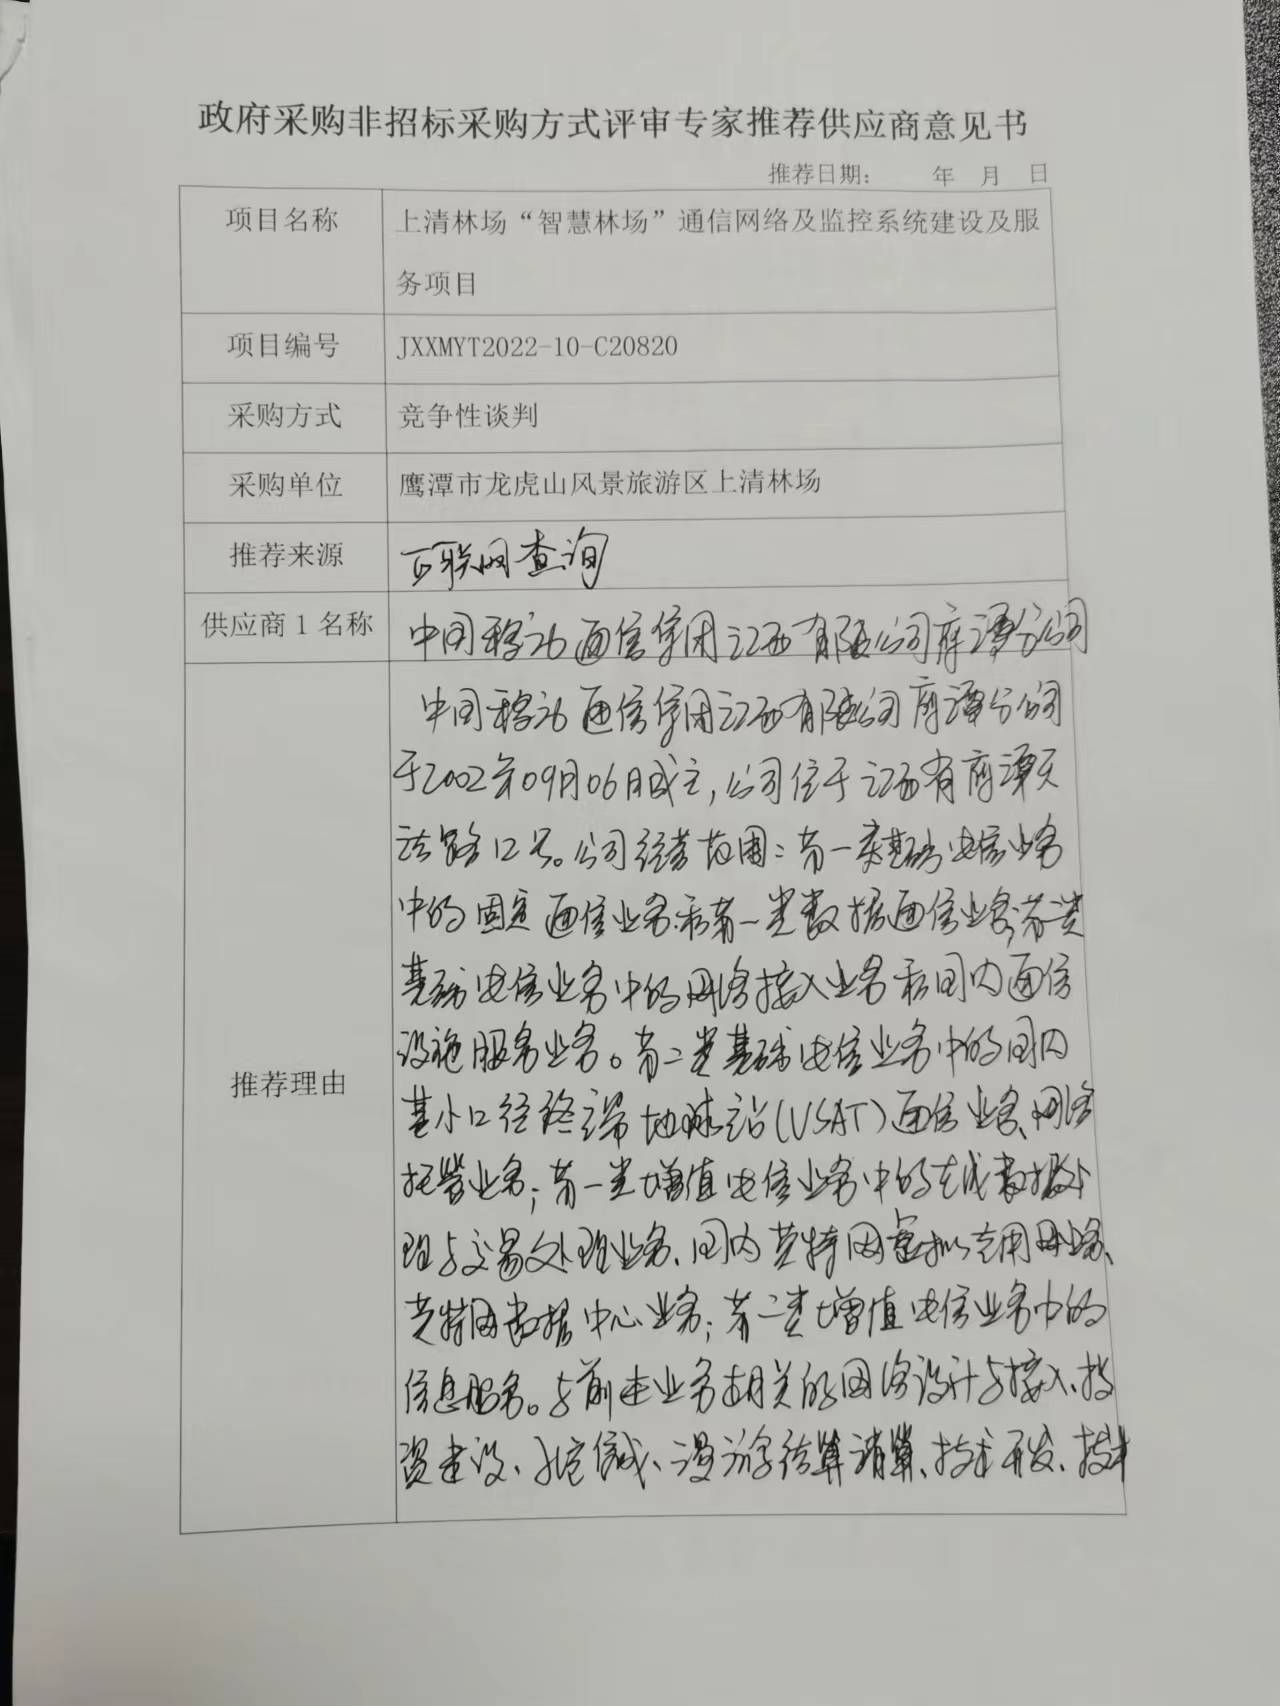 政府采购非招标采购方式评审专家推荐供应商意见书
推荐日期： 年 月 日
项目名称
上清林场“智慧林场”通信网络及监控系统建设及服
务项目
项目编号
JXXMYT2022-10-C20820
采购方式
竞争性谈判
采购单位
鹰潭市龙虎山风景旅游区上清林场
推荐来源
互联网查询
供应商1名称
中国移动通信集团江西有限公司鹰潭分公司
推荐理由
中国移动通信集团江西有限公司鹰潭分公司
于2002年09月06月成立，公司位于江西省鹰潭天
洁路12号。公司经营范围：第一类基础电信业务
中的固定通信业务和第一类数据通信业务；第二类
基础电信业务中的网络接入业务和国内通信
设施服务业务。第二类基础电信业务中的国内
甚小口径终端地球站(VSAT)通信业务、网络
托管业务；第一类增值电信业务中的在线数据处
理与交易处理业务、国内英特网虚拟专用网业务、
英特网数据中心业务；第二类增值电信业务中的
信息服务。与前述业务相关的网络设计与接入、投
资建设、漫游结算清算、技术开发、技术